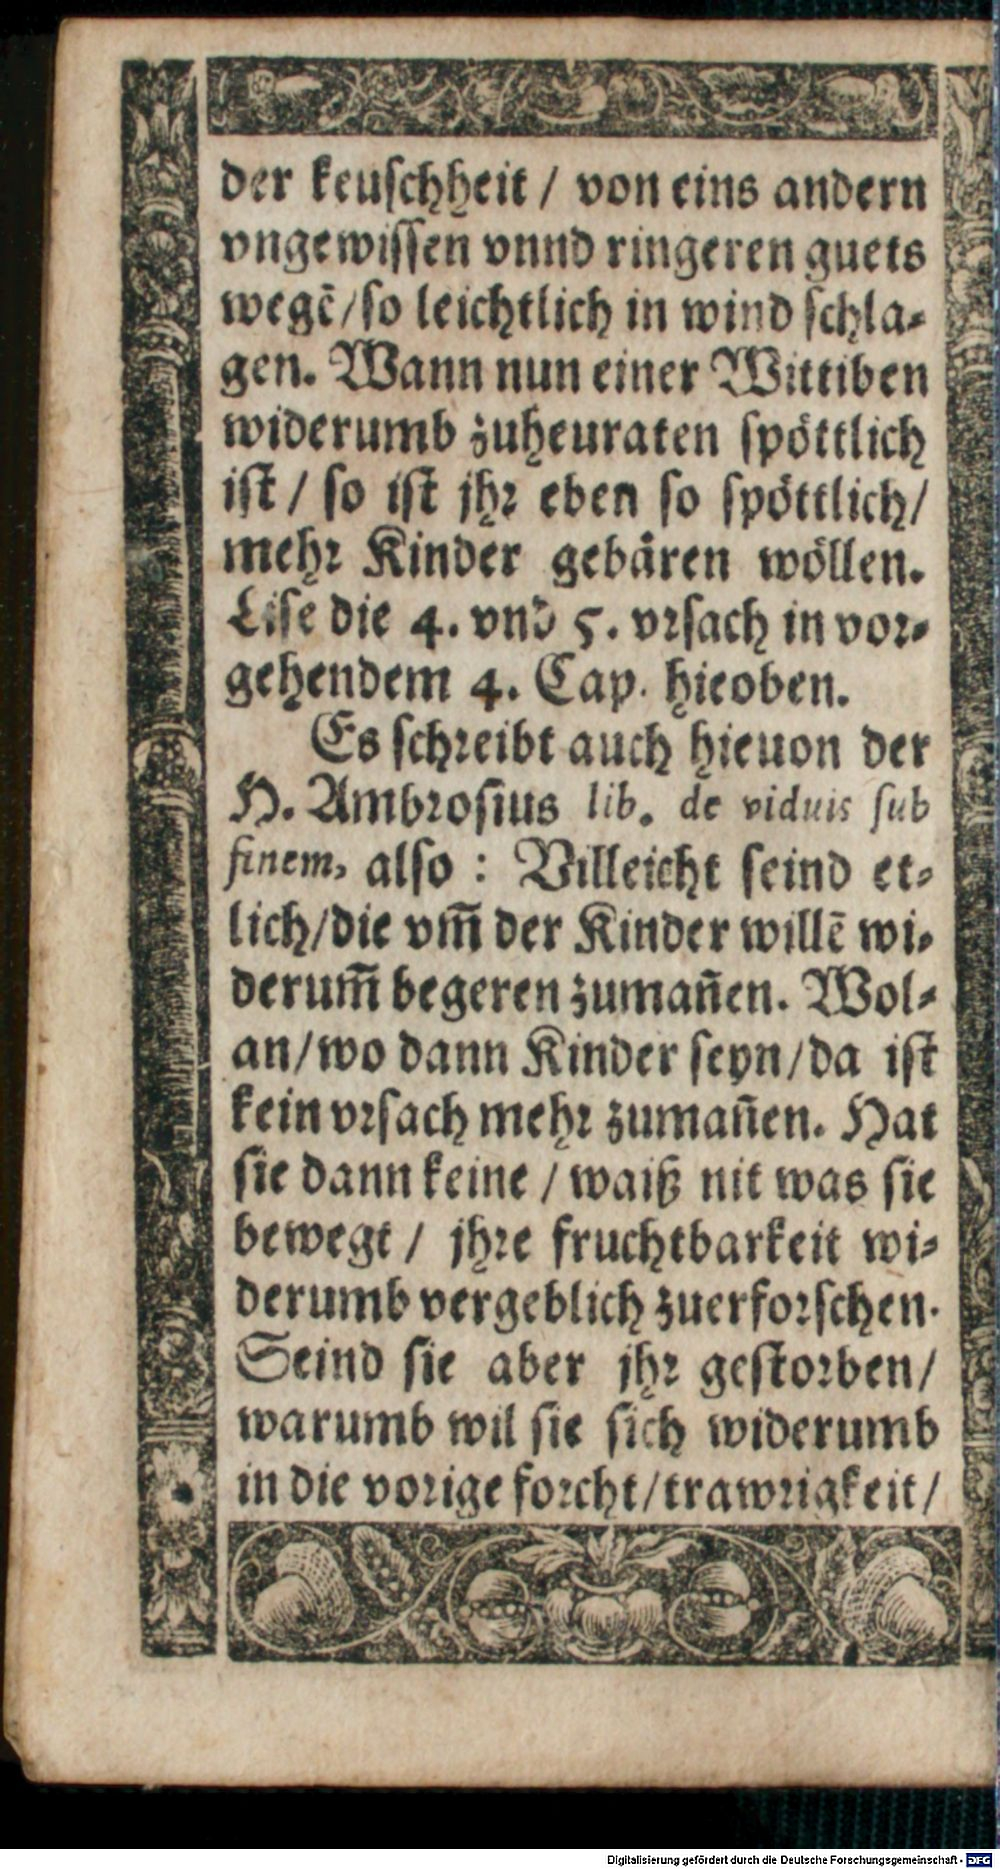 der keuschheit / von eins andern
vngewissen vnnd ringeren guets
wegẽ/so leichtlich in wind schla-
gen. Wann nun einer Wittiben
widerumb zuheuraten spöttlich
ist / so ist jhr eben so spöttlich/
mehr Kinder gebären wöllen.
Lise die 4. vnd 5. vrsach in vor-
gehendem 4. Cap. hieoben.
Es schreibt auch hieuon der
H. Ambrosius lib. de viduis sub
finem, also : Villeicht seind et-
lich/die vm̃ der Kinder willẽ wi-
derum̃ begeren zumañen. Wol-
an/wo dann Kinder seyn/da ist
kein vrsach mehr zumañen. Hat
sie dann keine / waiß nit was sie
bewegt / jhre fruchtbarkeit wi-
derumb vergeblich zuerforschen.
Seind sie aber jhr gestorben/
warumb wil sie sich widerumb
in die vorige forcht/trawrigkeit/
Digitalisierung gefördert durch die Deutsche Forschungsgemeinschaft - DFG